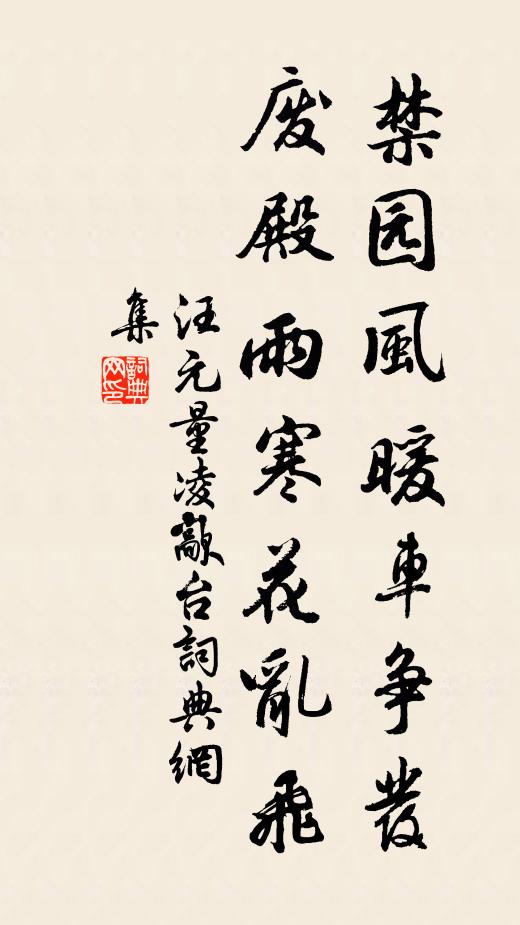 禁园風暖車争發
废殿雨寒花亂飛
汪元量凌歊台詞典網
集
詞典网印